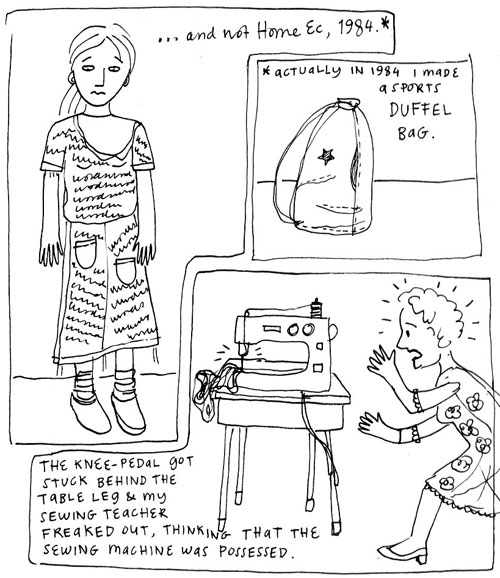 ... and not Home Ec, 1984.*
*actually IN 1984 I made
a sports
DUFFEL
BAG.
THE KNEE-PEDAL got
STUCK BEHIND THE
TABLE LEG & my
SEWING TEACHER
FREAKED OUT, THINKING THAT THE
SEWING MACHINE WAS POSSESSED.